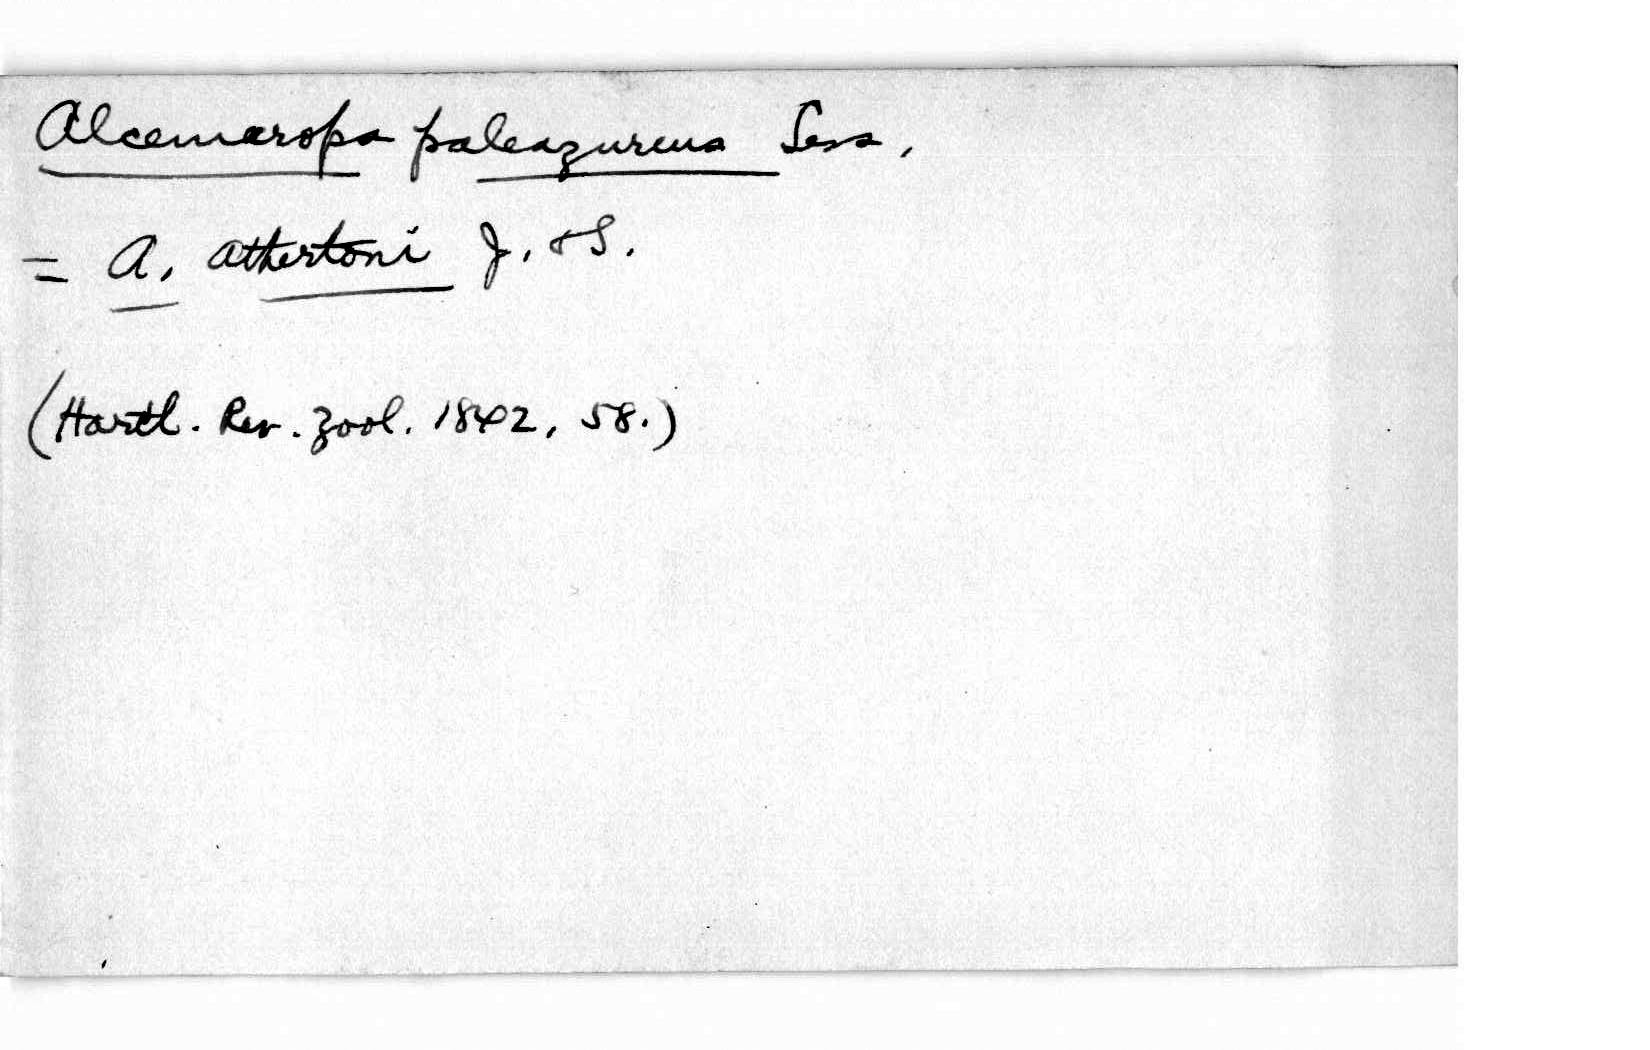 Alcemaropa paleazureus Less,
= A. athertoni J. & S.
(Hartl. Rev. Zool. 1842, 58.)